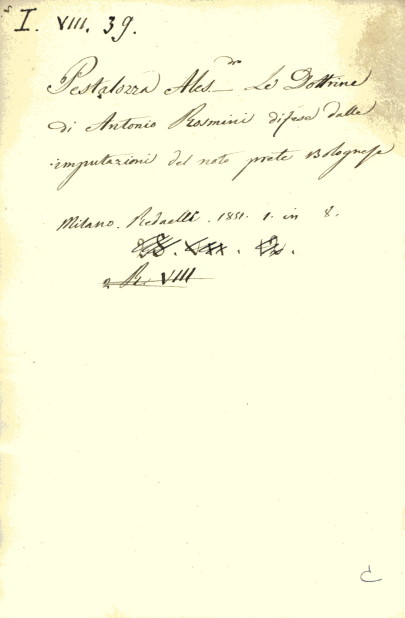 I. VIII. 39.
Pestalozza Ales.dro Le Dottrine
di Antonio Rosmini difese dalle
imputazioni del noto prete Bolognese
Milano. Redaelli. 1851. 1. in 8.
R. VIII
C